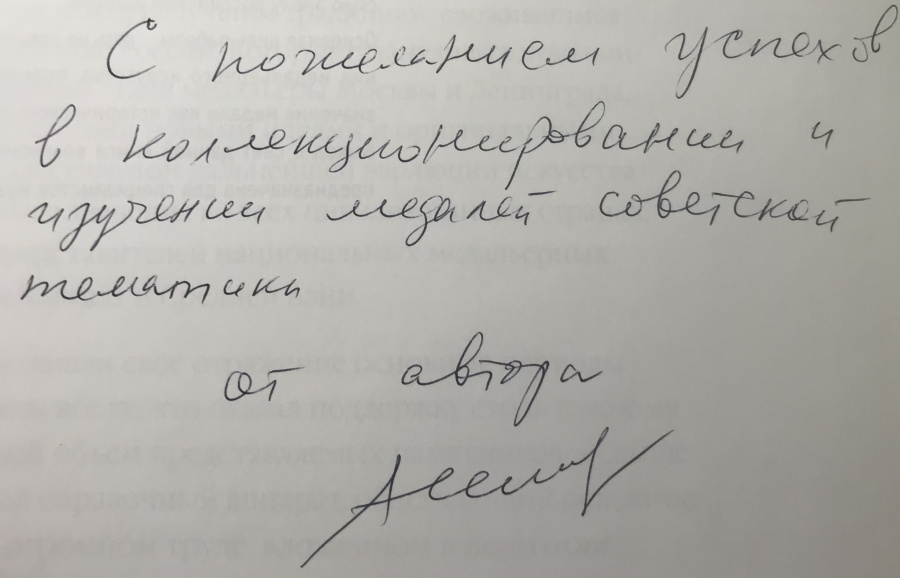 С пожеланием успехов
в коллекционировании и
изучении медалей советской
тематики
от автора